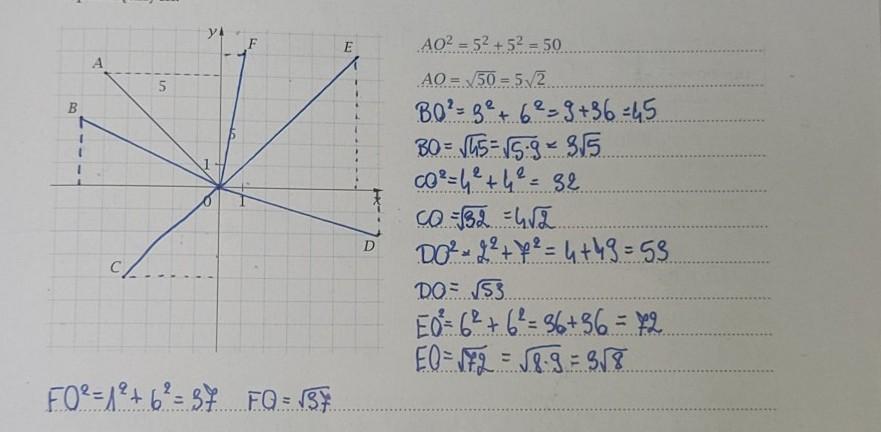 y
F
E
A
5
B
5
1
0
1
x
D
C
AO² = 5² + 5² = 50
AO = √50 = 5√2
BO² = 3² + 6² = 9+36 = 45
BO = √45 = √5·9 = 3√5
CO² = 4² + 4² = 32
CO = √32 = 4√2
DO² = 2² + 7² = 4 + 49 = 53
DO = √53
EO² = 6² + 6² = 36+36 = 72
EO = √72 = √8·9 = 3√8
FO² = 1² + 6² = 37 FO = √37